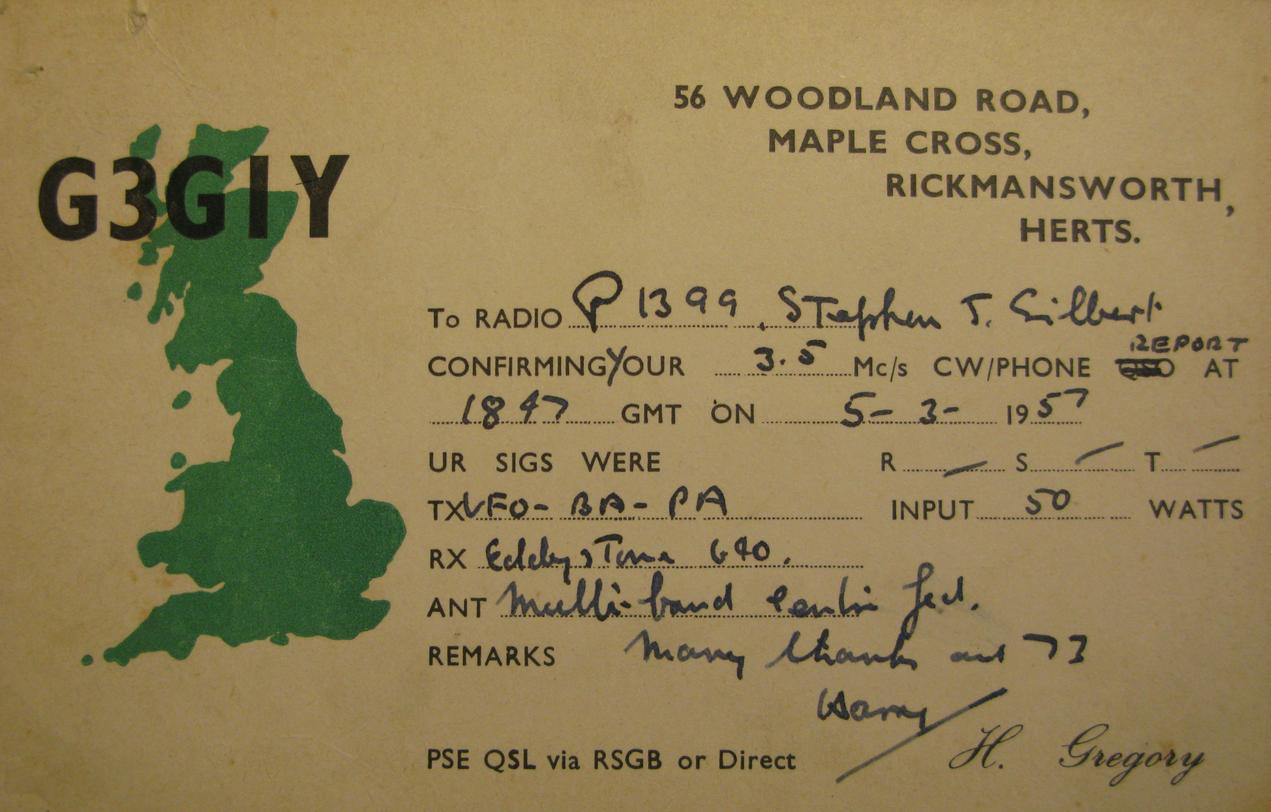 56 WOODLAND ROAD,
MAPLE CROSS,
RICKMANSWORTH,
HERTS.
G3GIY
To RADIO P 1399, Stephen J. Gilbert
REPORT
CONFIRMING YOUR 3.5 Mc/s CW/PHONE QSO AT
1847 GMT ON 5-3- 1957
UR SIGS WERE R — S — T —
TX VFO-BA-PA INPUT 50 WATTS
RX Eddystone 640.
ANT Multi-band centre fed.
REMARKS Many thanks and 73
Harry
PSE QSL via RSGB or Direct H. Gregory